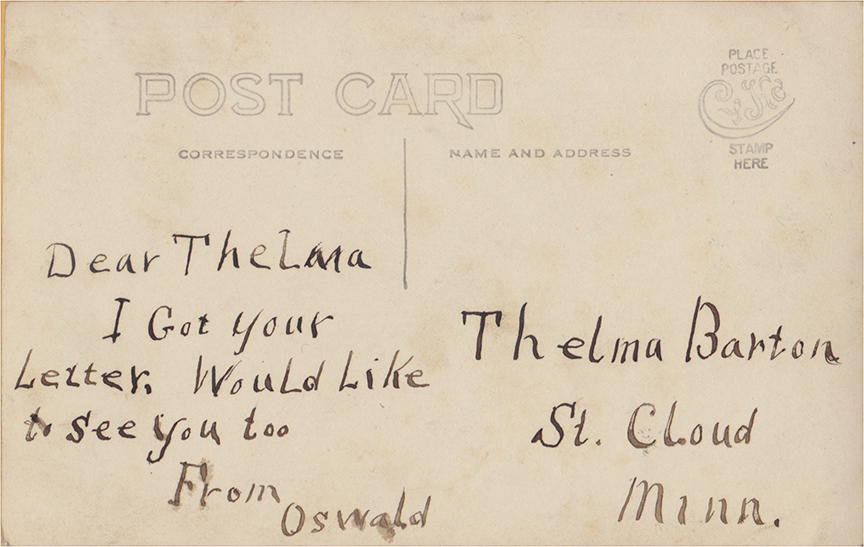 POST CARD
CORRESPONDENCE
NAME AND ADDRESS
PLACE
POSTAGE
CYKO
STAMP
HERE
Dear Thelma
I Got your
Letter. Would Like
to see you too
From
Oswald
Thelma Barton
St. Cloud
Minn.